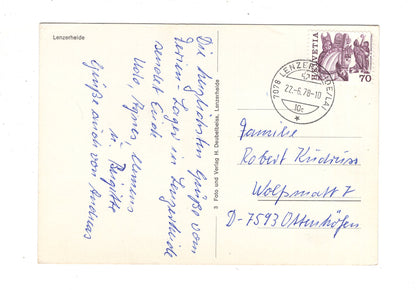 Lenzerheide
Die herzlichsten Grüße vom
Ferien-Lager in Lenzerheide
sendet Euch
Udo, Agnes, Clemens
u. Brigitte
Grüße auch von Andreas
3 Foto und Verlag H. Deubelbeiss, Lenzerheide
HELVETIA
70
7078 LENZERHEIDE/LAI
22.-6.78-10
10c
Familie
Robert
Wolfsmatt 7
D-7593 Ottenhöfen